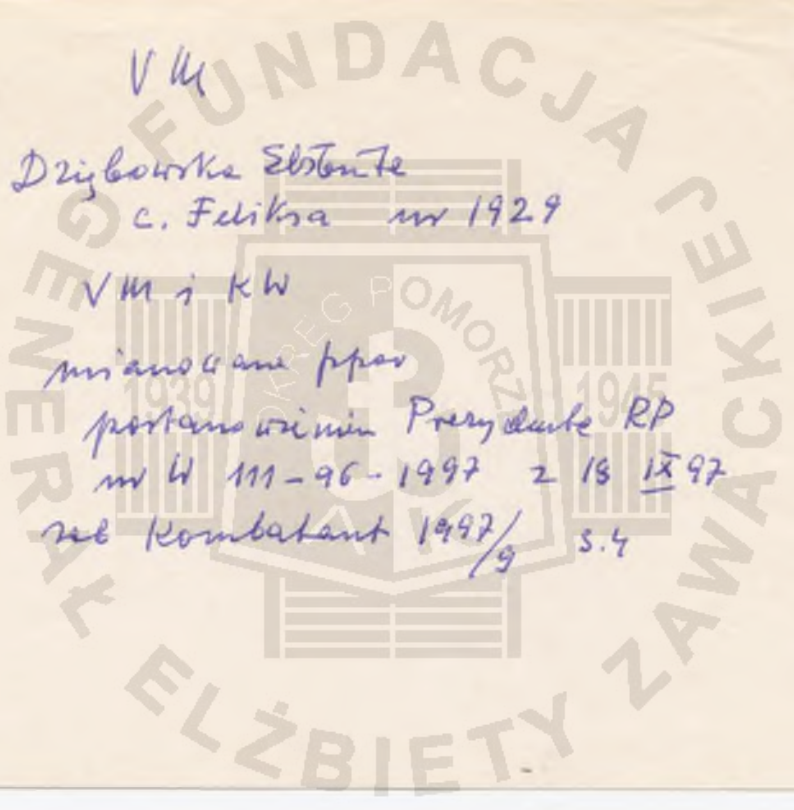 VM
Dziębowska Elżbieta
c. Feliksa ur 1929
VM i KW
mianowana ppor
postanowieniem Prezydenta RP
nr W 111-96-1997 z 18 IX 97
zob Kombatant 1997/9 s.4
FUNDACJA GENERAŁ ELŻBIETY ZAWACKIEJ
OKRĘG POMORZE
1939 1945
AK